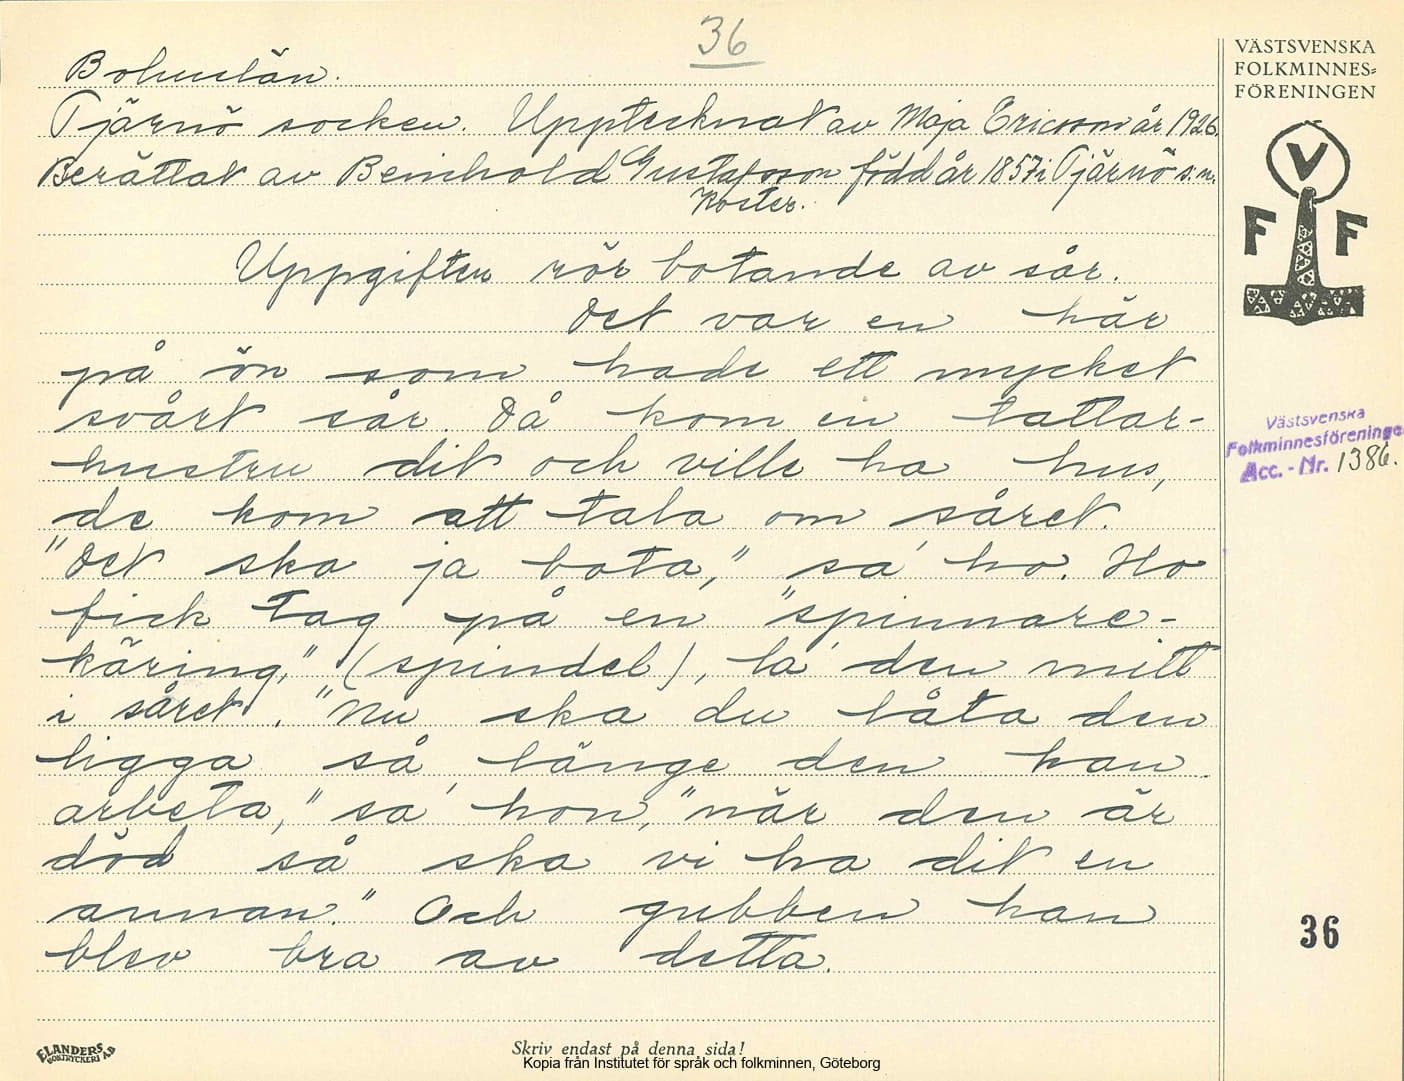 36
Bohuslän.
Tjärnö socken. Upptecknat av Maja Ericsson år 1926.
Berättat av Bernhold Gustafsson född år 1857 i Tjärnö s:n.
Koster.
Uppgiften rör botande av sår.
Det var en här
på ön som hade ett mycket
svårt sår. Då kom en tattar-
hustru dit och ville ha hus,
de kom att tala om såret.
"Det ska ja bota," sa' ho. Ho
fick tag på en "spinnare-
käring," (spindel), la' den mitt
i såret. "Nu ska du låta den
ligga så länge den kan
arbeta," sa' hon, "när den är
död så ska vi ha dit en
annan." Och gubben han
blev bra av detta.
VÄSTSVENSKA
FOLKMINNES=
FÖRENINGEN
V
F F
Västsvenska
Folkminnesföreninge
Acc. - Nr. 1386.
36
ELANDERS
BOKTRYCKERI A.B
Skriv endast på denna sida!
Kopia från Institutet för språk och folkminnen, Göteborg